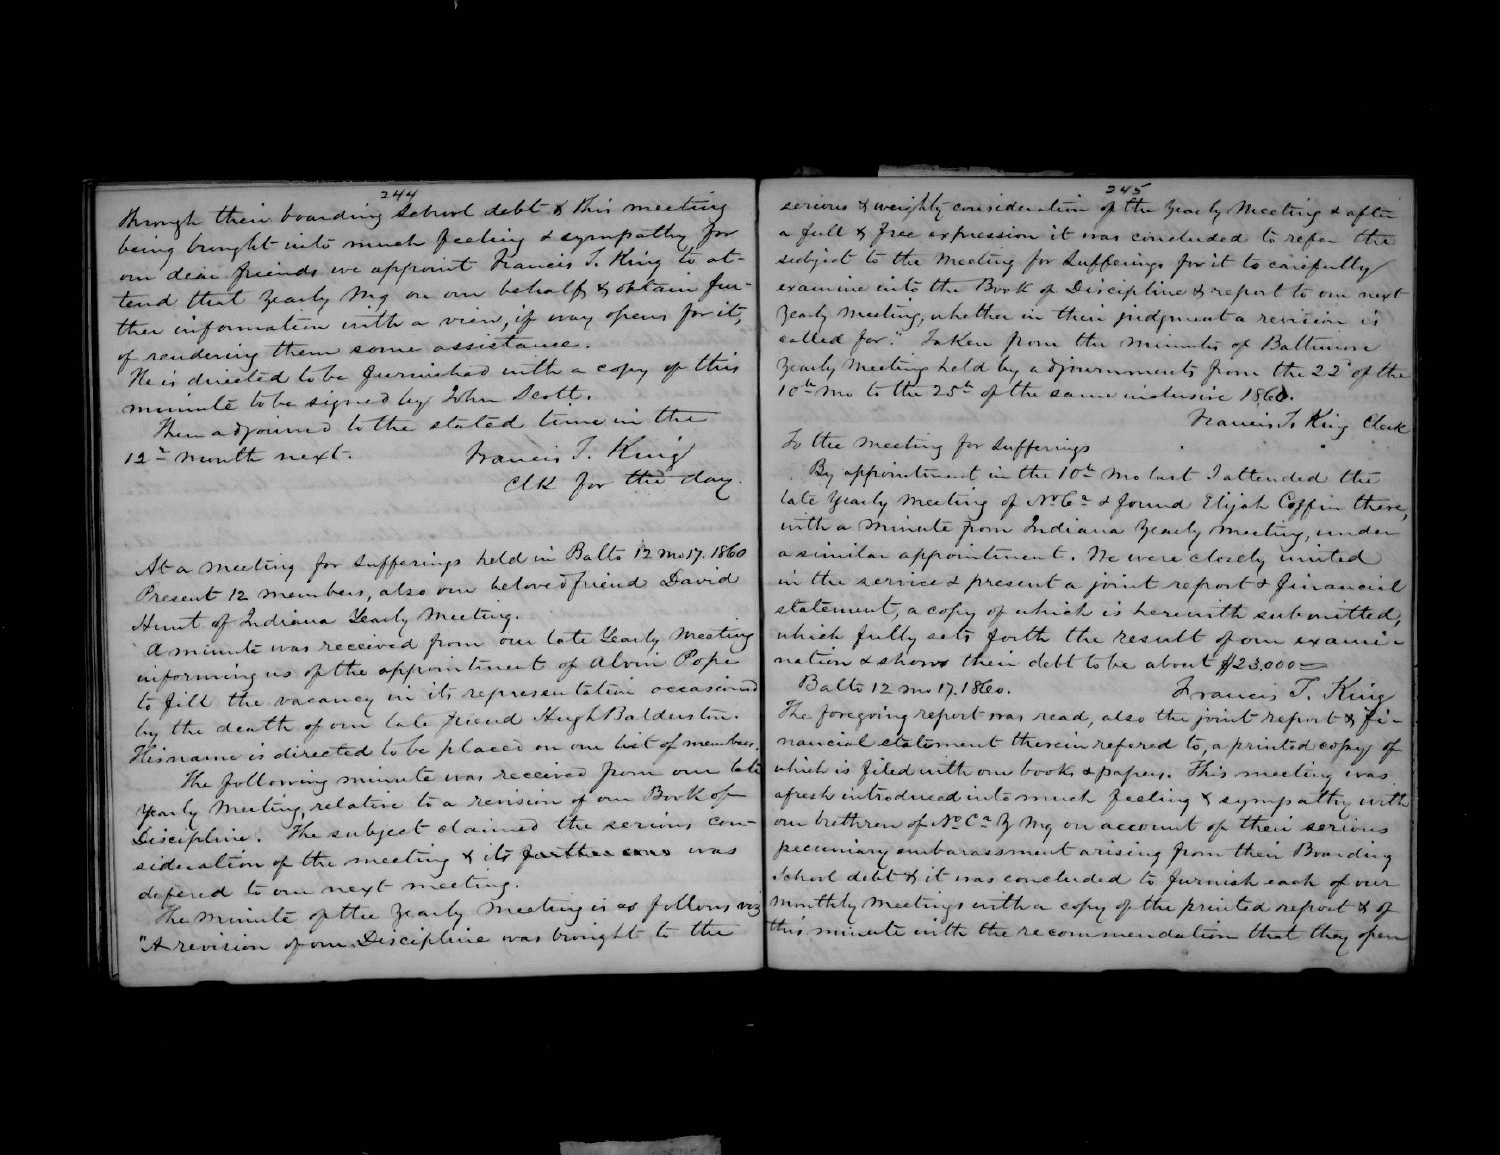 244
through their boarding School debt & this meeting
being brought into much feeling & sympathy for
our dear friends we appoint Francis T. King to at-
tend that Yearly Mg on our behalf & obtain fur-
ther information with a view, if way opens for it,
of rendering them some assistance.
He is directed to be furnished with a copy of this
minute to be signed by John Scott.
Then adjourned to the stated time in the
12th month next. Francis T. King
Clk for the day.
At a meeting for Sufferings held in Balto 12 mo 17. 1860
Present 12 members, also our beloved friend David
Hunt of Indiana Yearly Meeting.
A minute was received from our late Yearly Meeting
informing us of the appointment of Alvin Pope
to fill the vacancy in its representation occasioned
by the death of our late friend Hugh Balderston.
His name is directed to be placed on our list of members.
The following minute was received from our late
Yearly Meeting, relative to a revision of our Book of
Discipline. The subject claimed the serious con-
sideration of the meeting & its further was
defered to our next meeting.
The minute of the Yearly Meeting is as follows viz
"A revision of our Discipline was brought to the
245
serious & weighty consideration of the Yearly Meeting & after
a full & free expression it was concluded to refer the
subject to the Meeting for Sufferings for it to carefully
examine into the Book of Discipline & report to our next
Yearly Meeting, whether in their judgment a revision is
called for." Taken from the minutes of Baltimore
Yearly Meeting held by adjournments from the 22d of the
10th mo to the 25th of the same inclusive 1860.
Francis T. King Clerk
To the Meeting for Sufferings
By appointment in the 10th mo last I attended the
late Yearly Meeting of No Ca & found Elijah Coffin there,
with a minute from Indiana Yearly Meeting, under
a similar appointment. We were closely united
in the service & present a joint report & financial
statement, a copy of which is herewith submitted,
which fully sets forth the result of our exami-
nation & shows their debt to be about $23.000=
Balto 12 mo 17. 1860. Francis T. King
The foregoing report was read, also the joint report & fi-
nancial statement therein refered to, a printed copy of
which is filed with our books & papers. This meeting was
afresh introduced into much feeling & sympathy with
our brethren of No Ca Y Mg on account of their serious
pecuniary embarassment arising from their Boarding
School debt & it was concluded to furnish each of our
monthly meetings with a copy of the printed report & of
this minute with the recommendation that they open